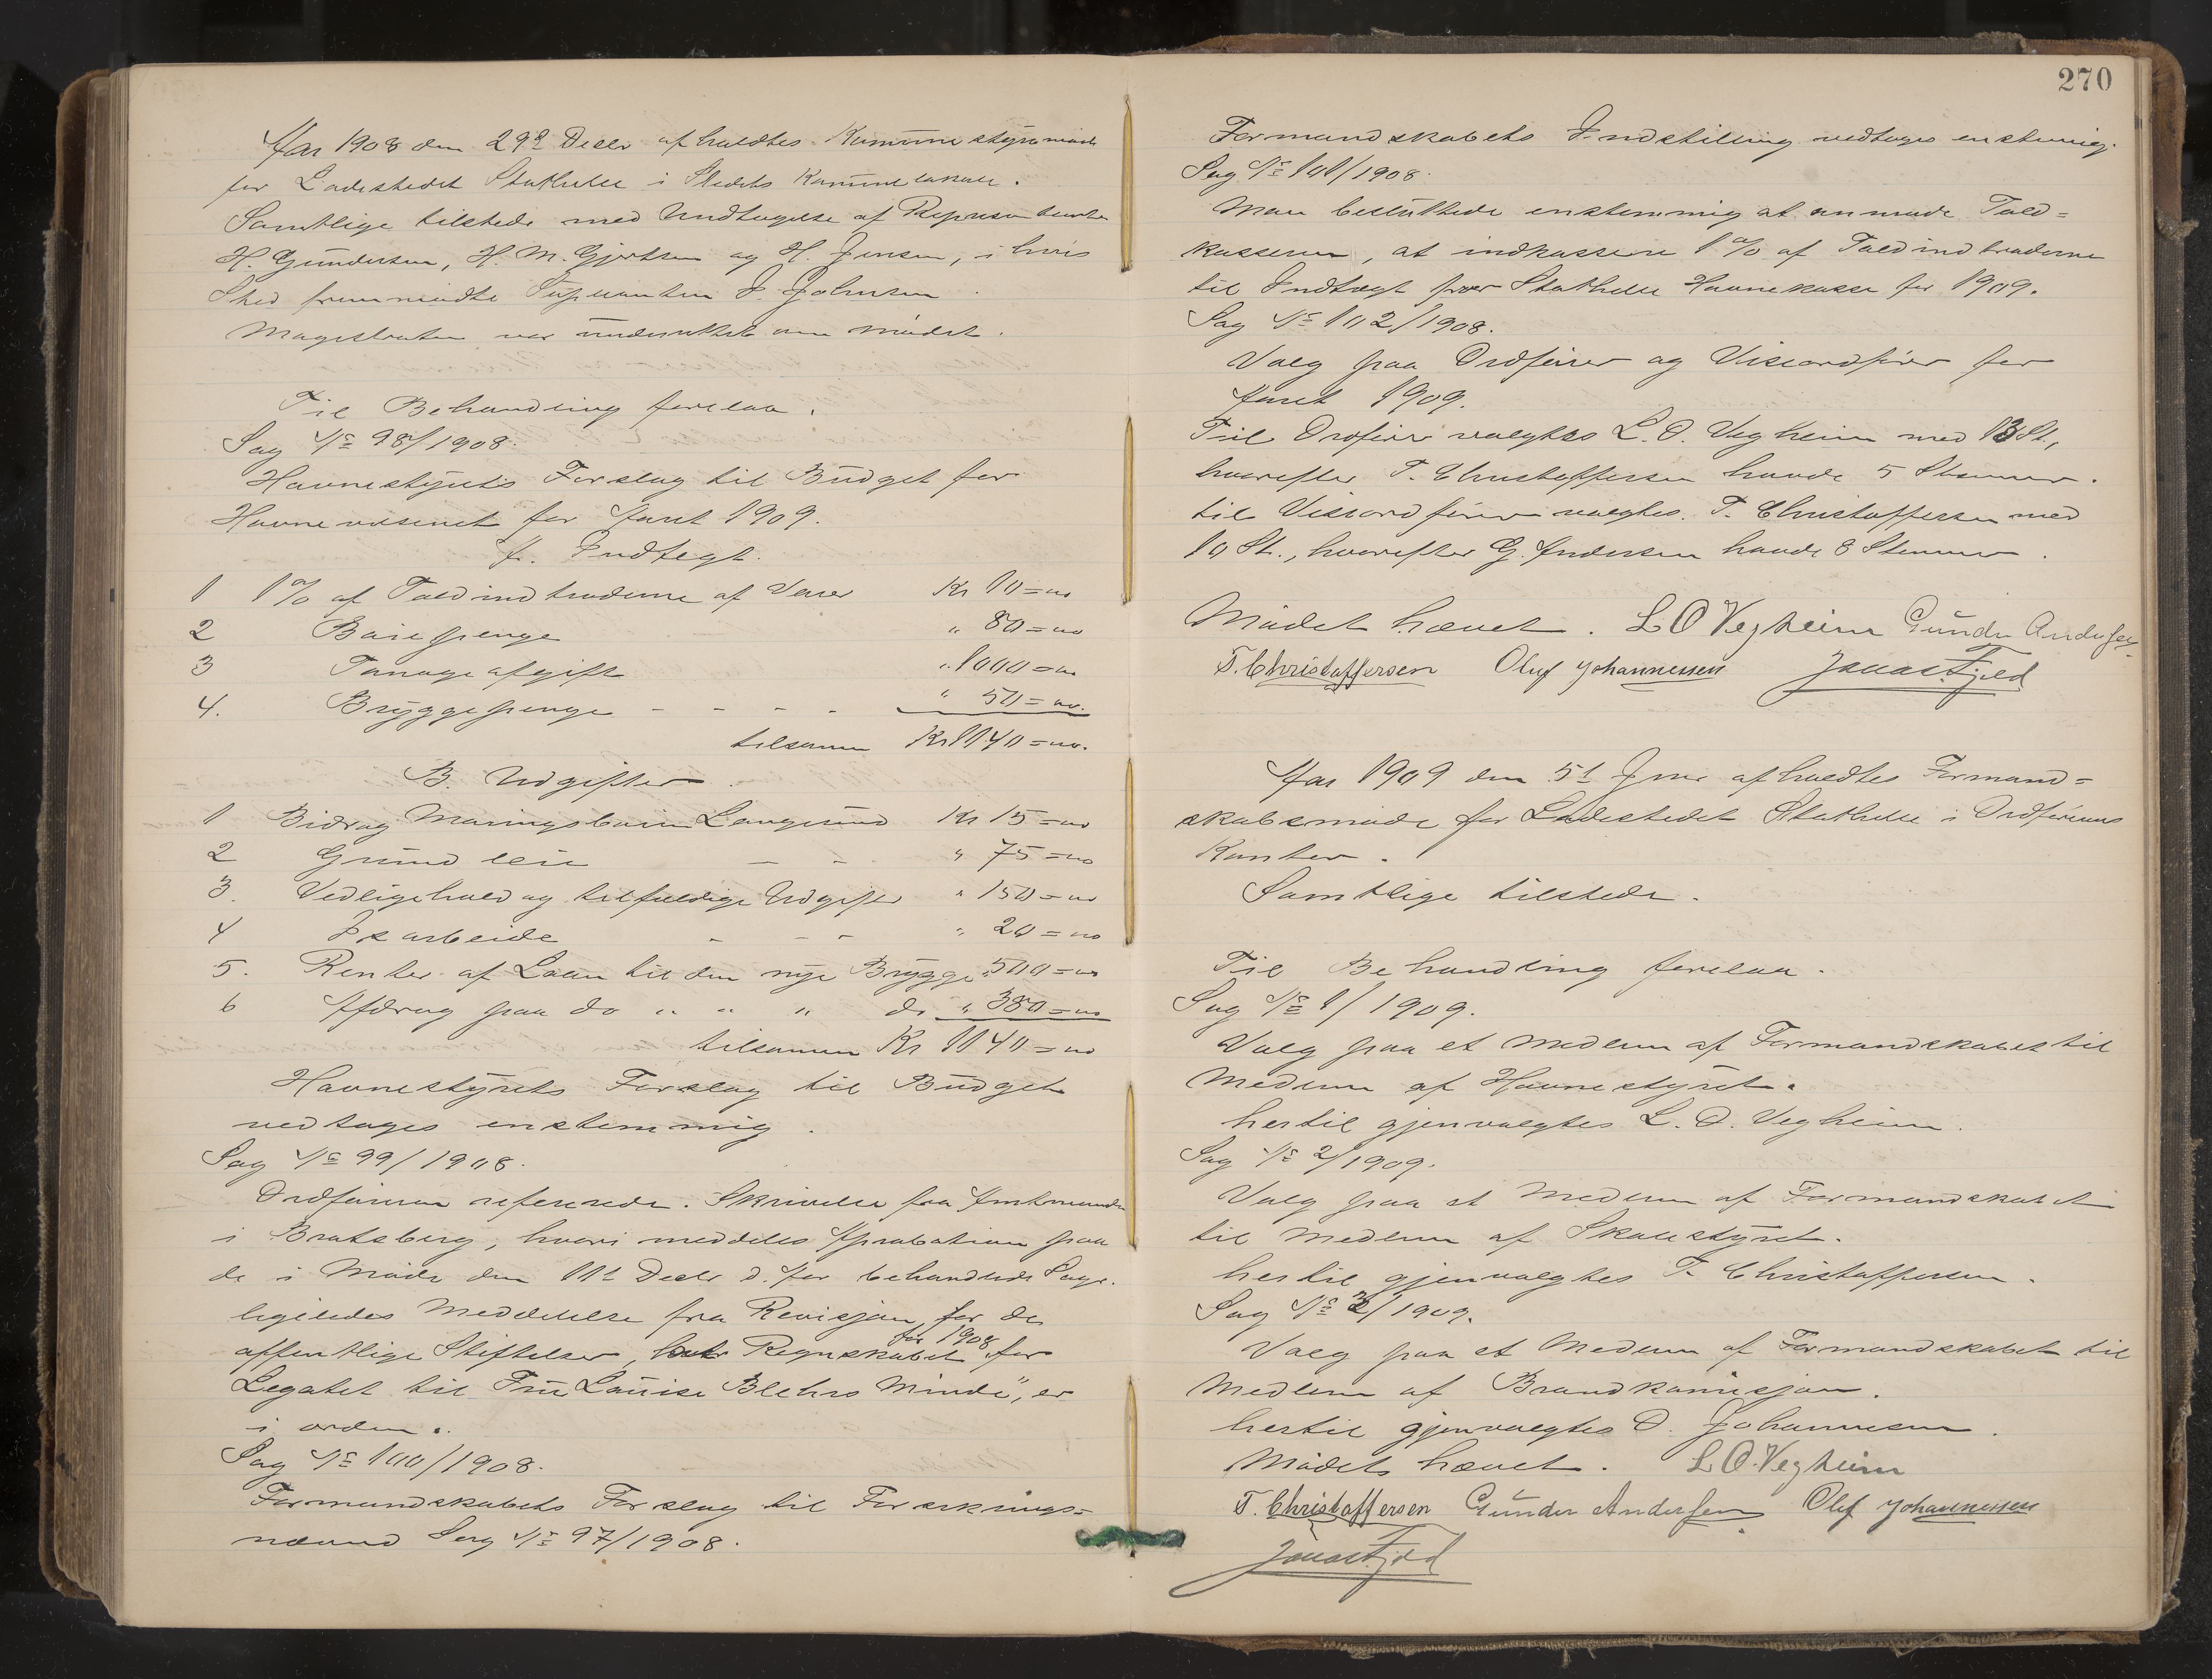 Aar 1908 den 29de Decbr afholdtes Kommunestyremøde
for Ladestedet Stathelle i Stedets Kommunelokale.
Samtlige tilstede med Undtagelse af Repræsentanter
H. Gundersen, H. M. Gjertsen og H. Jensen, i hvis
Sted fremmødte Supleanten J. Johnsen
Magistraten var underrettet om Mødet.
Til Behandling forelaa.
Sag No 98/1908.
Havnestyrets Forslag til Budget for
Havnevæsenet for Aaret 1909.
A. Indtegt.
1 1% af Toldindtraderne af Varer Kr 10=00
2 Bøiepenge " 80=00
3 Tonageafgift " 1000=00
4. Bryggepenge - - - - " 50=00.
tilsamm Kr 1140=00.
B. Udgifter.
1 Bidrag Maaringsbøien Langesund Kr 15=00
2 Grundleie - - " 75=00
3. Vedligehold og tilfældige Udgifter " 150=00
4 Isarbeide - - - " 20=00
5. Renter af Laan til den nye Brygge " 500=00
6 Afdrag paa do " " " do " 380=00
tilsamm Kr 1140=00
Havnestyrets Forslag til Budget
vedtoges enstemmig.
Sag No 99/1908.
Ordføreren refererede. Skrivelse fra Amtmanden
i Bratsberg, hvori meddeles Aprobation paa
de i Møde den 11te Decbr d. Aar behandlede Sager.
ligeledes Meddelelse fra Revisjon for de
offentlige Stiftelser, Regnskabet for 1908 for
Legatet til "Fru Louise Blehrs Minde", er
i orden.
Sag No 100/1908.
Formandskabets Forslag til Forsknings=
nævnd Sag No 97/1908.
270
Formandskabets Indstilling vedtoges enstemmig.
Sag No 101/1908.
Man besluttede enstemmig at anmode Told=
kassereren, at indkassere 1% af Toldindtraderne
til Indtægt for Stathelle Havnekasse for 1909.
Sag No 102/1908.
Valg paa Ordfører og Viseordfører for
Aaret 1909.
Til Ordfører valgtes L. O. Vegheim med 13 St.,
hvorefter T. Christoffersen havde 5 Stemmer.
til Viseordfører valgtes. T. Christoffersen med
10 St., hvorefter G. Andersen havde 8 Stemmer.
Mødet hævet. L O Vegheim Gunder Andersen
T. Christoffersen Oluf Johannessen Jonas Fjeld
Aar 1909 den 5te Jnr afholdtes Formand=
skabsmøde for Ladestedet Stathelle i Ordførerens
Kontor.
Samtlige tilstede.
Til Behandling forelaa.
Sag No 1/1909.
Valg paa et Medlem af Formandskabet til
Medlem af Havnestyret.
hertil gjenvalgtes L. O. Vegheim.
Sag No 2/1909.
Valg paa et Medlem af Formandskabet
til Medlem af Skolestyret.
hertil gjenvalgtes T. Christoffersen.
Sag No 3/1909.
Valg paa et Medlem af Formandskabet til
Medlem af Brandkomisjon.
hertil gjenvalgtes O. Johannesen.
Mødets hævet. L O. Vegheim
T. Christoffersen Gunder Andersen Oluf Johannessen
Jonas Fjeld